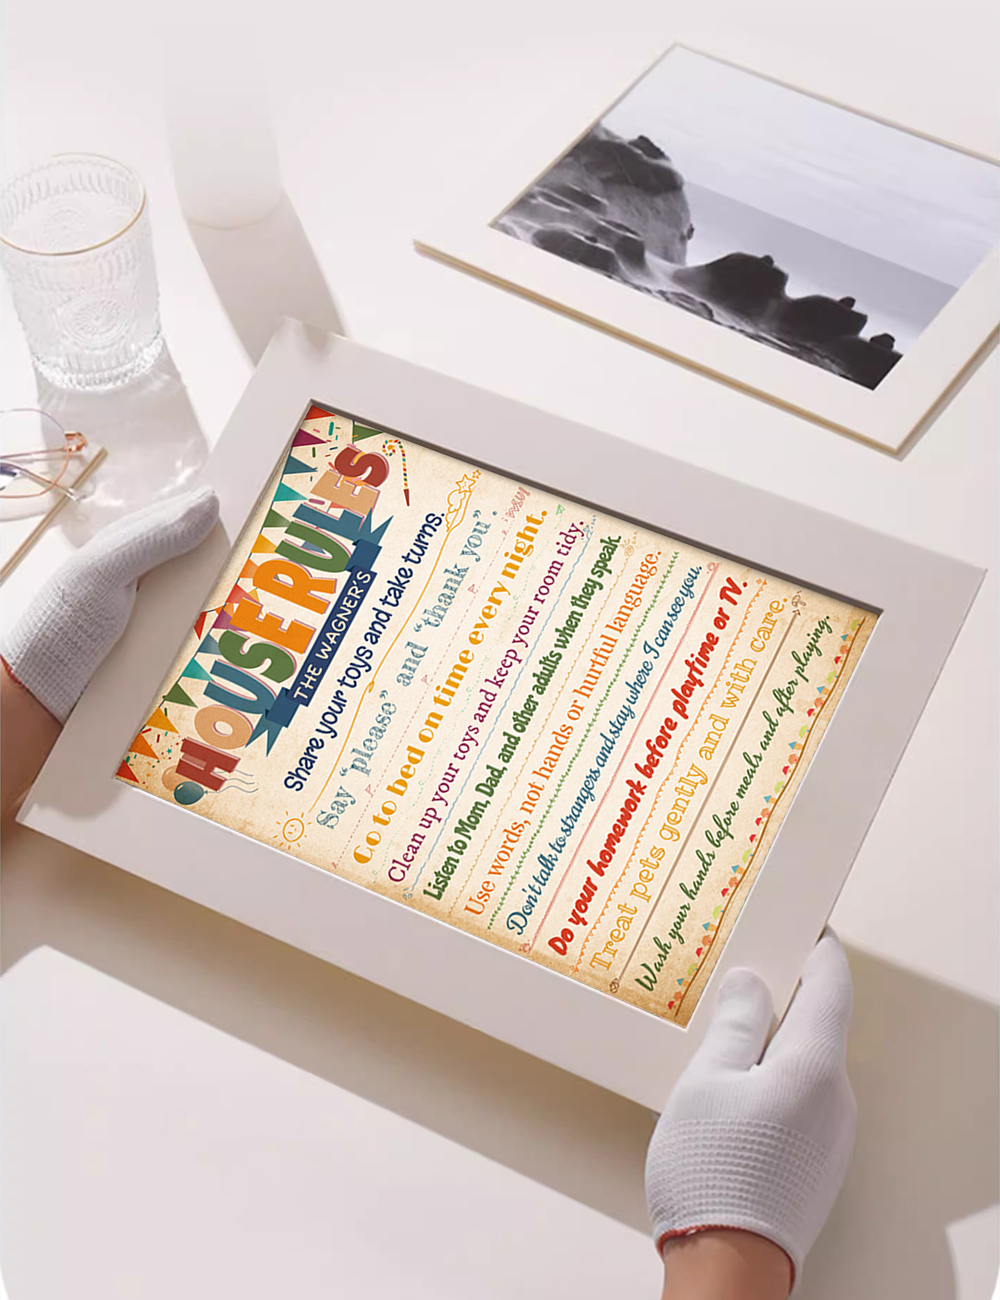 HOUSE RULES
THE WAGNER'S
Share your toys and take turns.
Say “please” and “thank you”.
Go to bed on time every night.
Clean up your toys and keep your room tidy.
Listen to Mom, Dad, and other adults when they speak.
Use words, not hands or hurtful language.
Don't talk to strangers and stay where I can see you.
Do your homework before playtime or TV.
Treat pets gently and with care.
Wash your hands before meals and after playing.